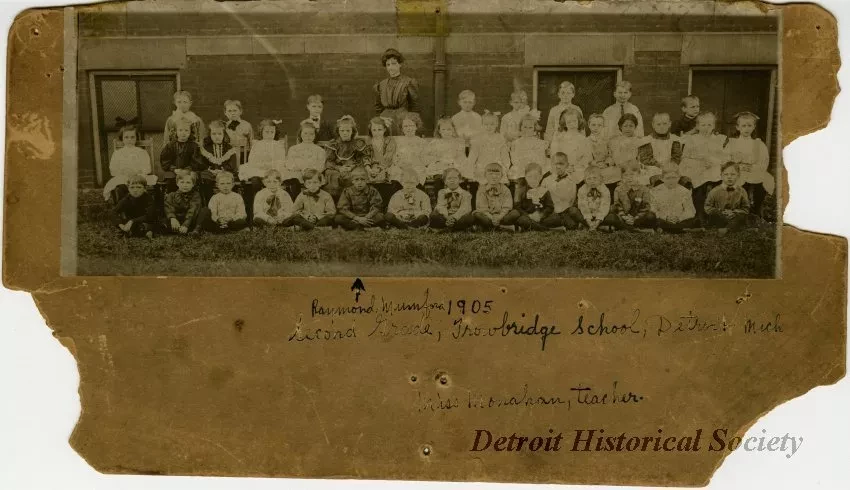 Raymond Mumford 1905
Second Grade, Trowbridge School, Detroit Mich
Miss Monahan, teacher.
Detroit Historical Society